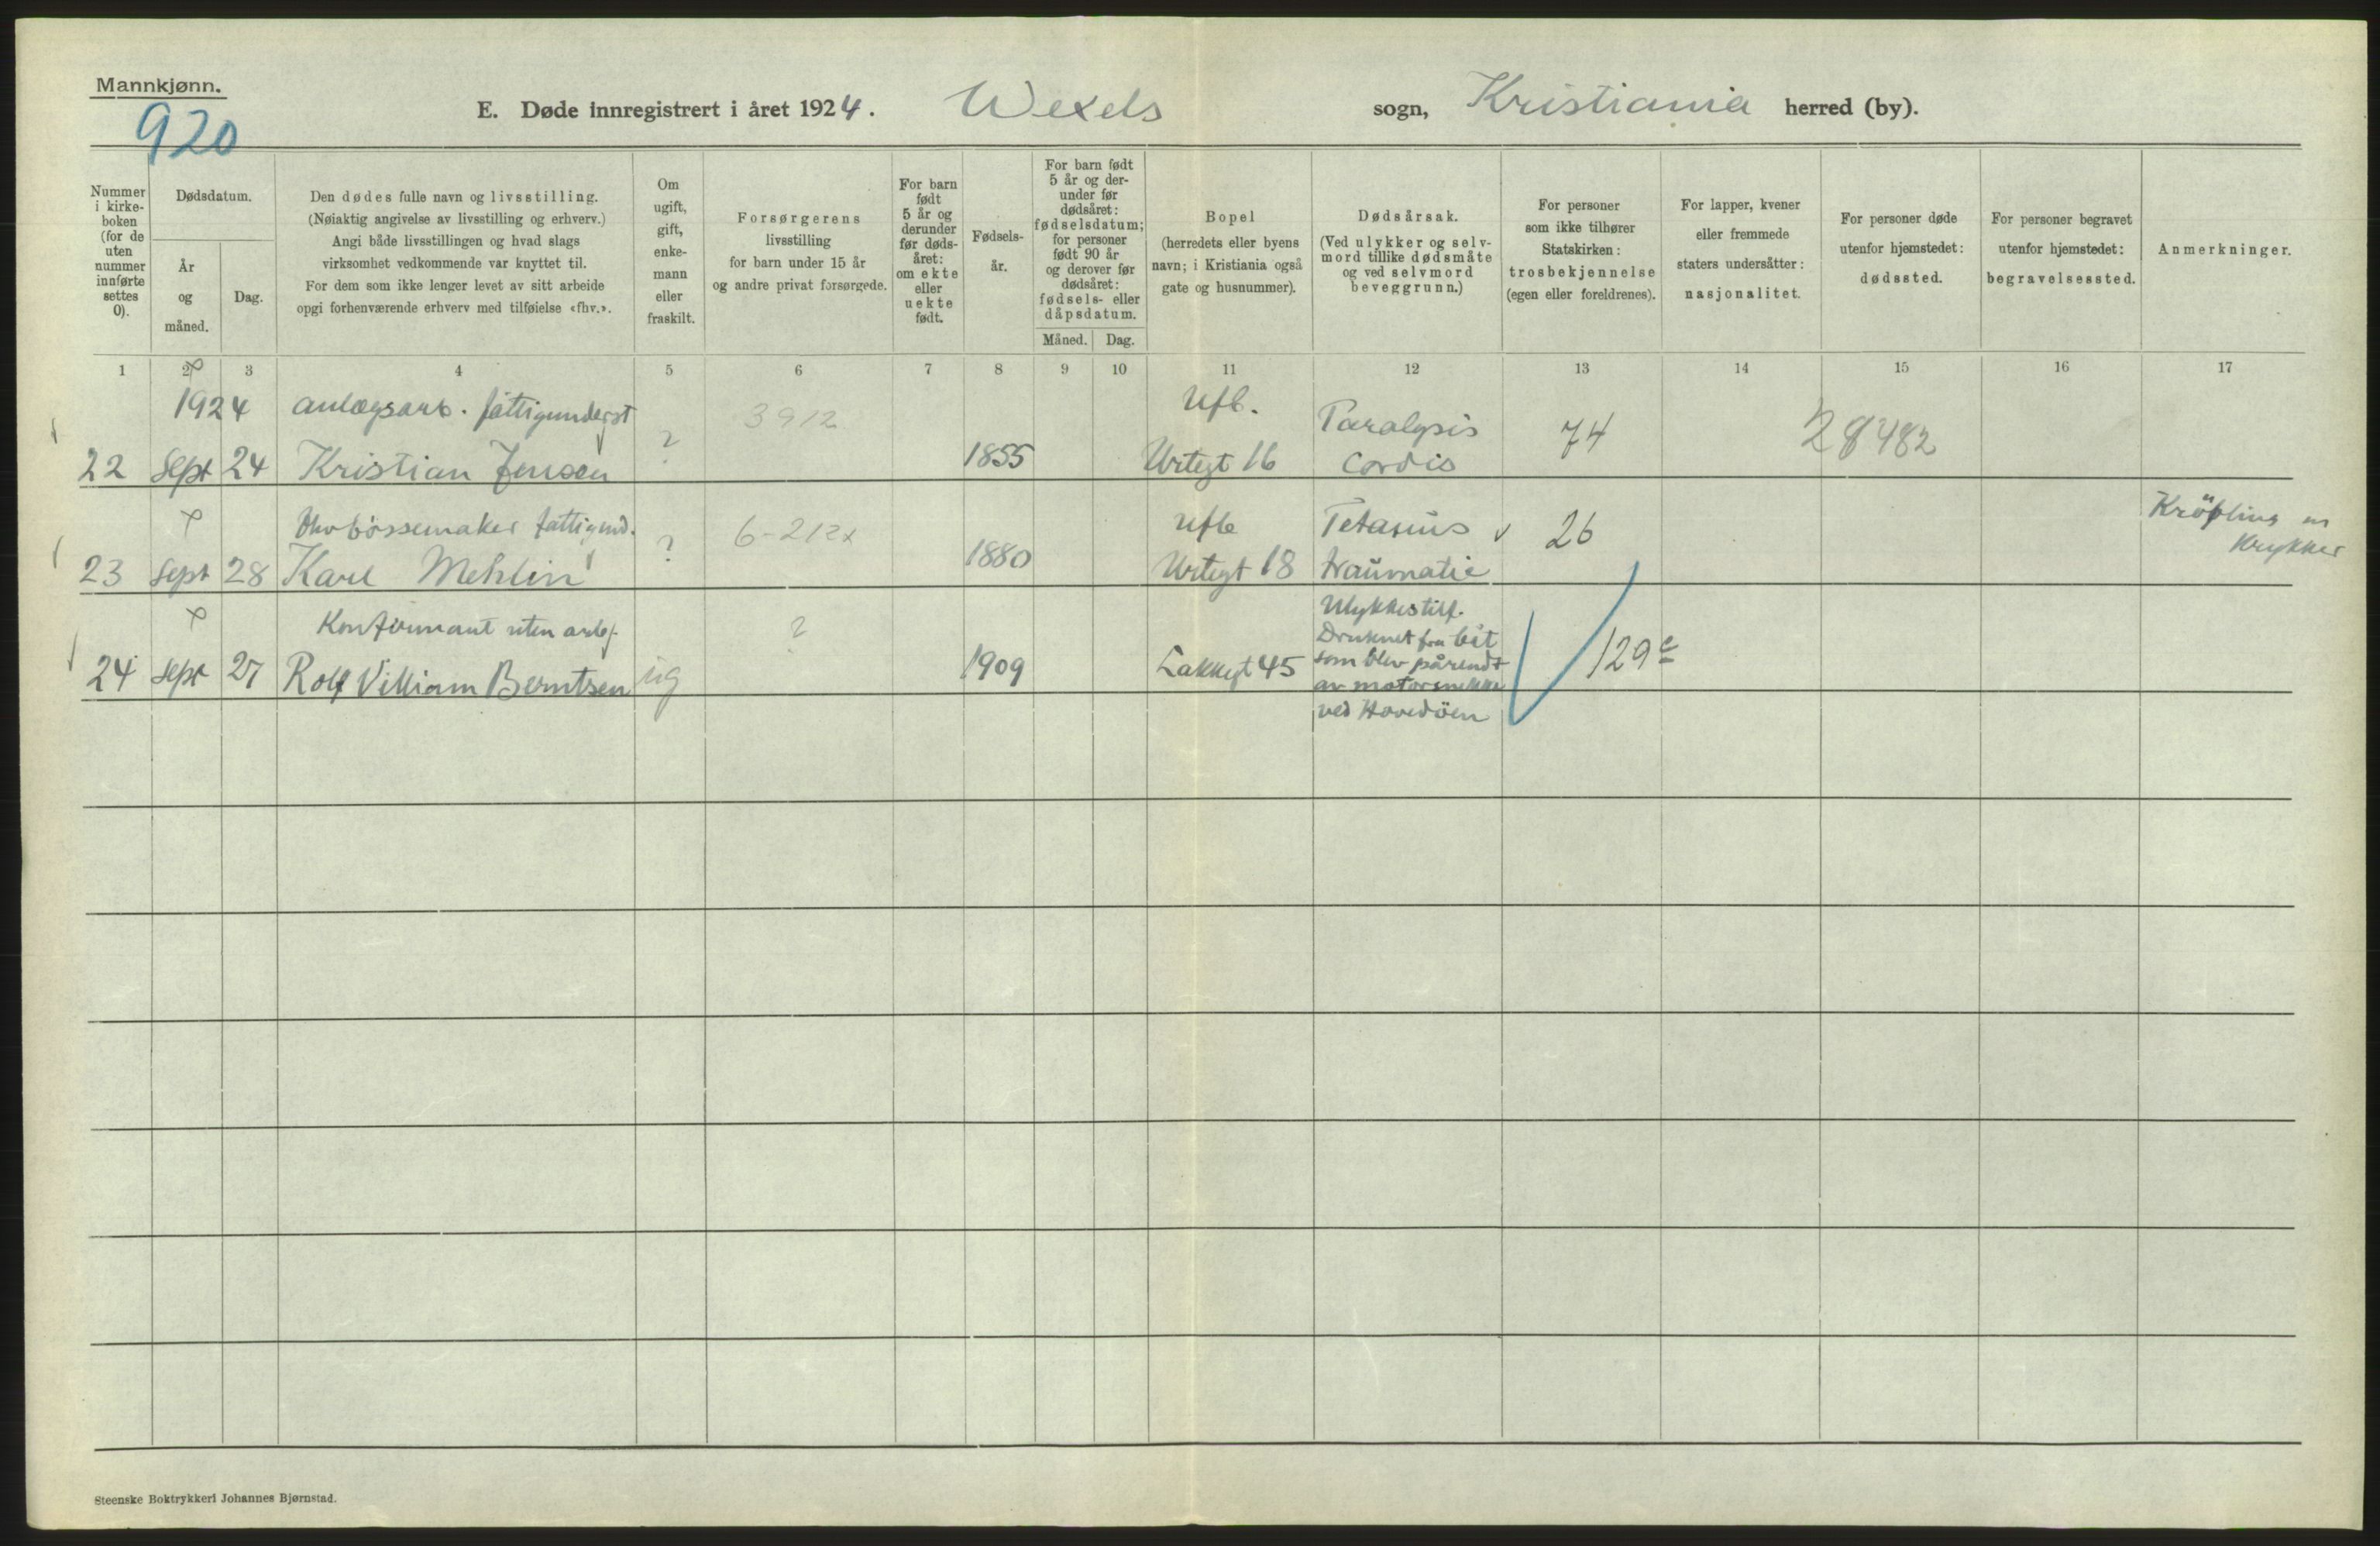 Mannkjønn.
920
E. Døde innregistrert i året 1924. Wexels sogn, Kristiania herred (by).
Nummer i kirke-boken (for de uten nummer innførte settes 0).
Dødsdatum.
År og måned.
Dag.
Den dødes fulle navn og livsstilling.
(Nøiaktig angivelse av livsstilling og erhverv.)
Angi både livsstillingen og hvad slags
virksomhet vedkommende var knyttet til.
For dem som ikke lenger levet av sitt arbeide
opgi forhenværende erhverv med tilføielse «fhv.».
Om ugift, gift, enke-mann eller fraskilt.
Forsørgerens
livsstilling
for barn under 15 år
og andre privat forsørgede.
For barn født 5 år og derunder før døds-året: om ekte eller uekte født.
Fødsels-år.
For barn født 5 år og der-under før dødsåret: fødselsdatum; for personer født 90 år og derover før dødsåret: fødsels- eller dåpsdatum.
Måned. Dag.
Bopel
(herredets eller byens
navn; i Kristiania også
gate og husnummer).
Dødsårsak.
(Ved ulykker og selv-
mord tillike dødsmåte
og ved selvmord
beveggrunn.)
For personer
som ikke tilhører
Statskirken:
trosbekjennelse
(egen eller foreldrenes).
For lapper, kvener
eller fremmede
staters undersåtter:
nasjonalitet.
For personer døde
utenfor hjemstedet:
dødssted.
For personer begravet
utenfor hjemstedet:
begravelsessted.
Anmerkninger.
1 2 3 4 5 6 7 8 9 10 11 12 13 14 15 16 17
1924 anlægsarb. fattigunderst 3912 Ufb. Paralysis 74 28482
22 Sept 24 Kristian Jensen ? 1855 Urtegt 16 Cordis
fattigund. 6-212x Ufb Tetanus 26 Krøpling m
Krykker
23 Sept 28 Karl Mehlin ? 1880 Urtegt 18 traumatic
Konfirmant uten arbf. ? Ulykkestilf.
Druknet fra båt
24 Sept 27 Rolf Villiam Berntsen ug 1909 Lakkegt 45 som blev pårendt 129 e
av motorsnekke
ved Hovedöen
Steenske Boktrykkeri Johannes Bjørnstad.